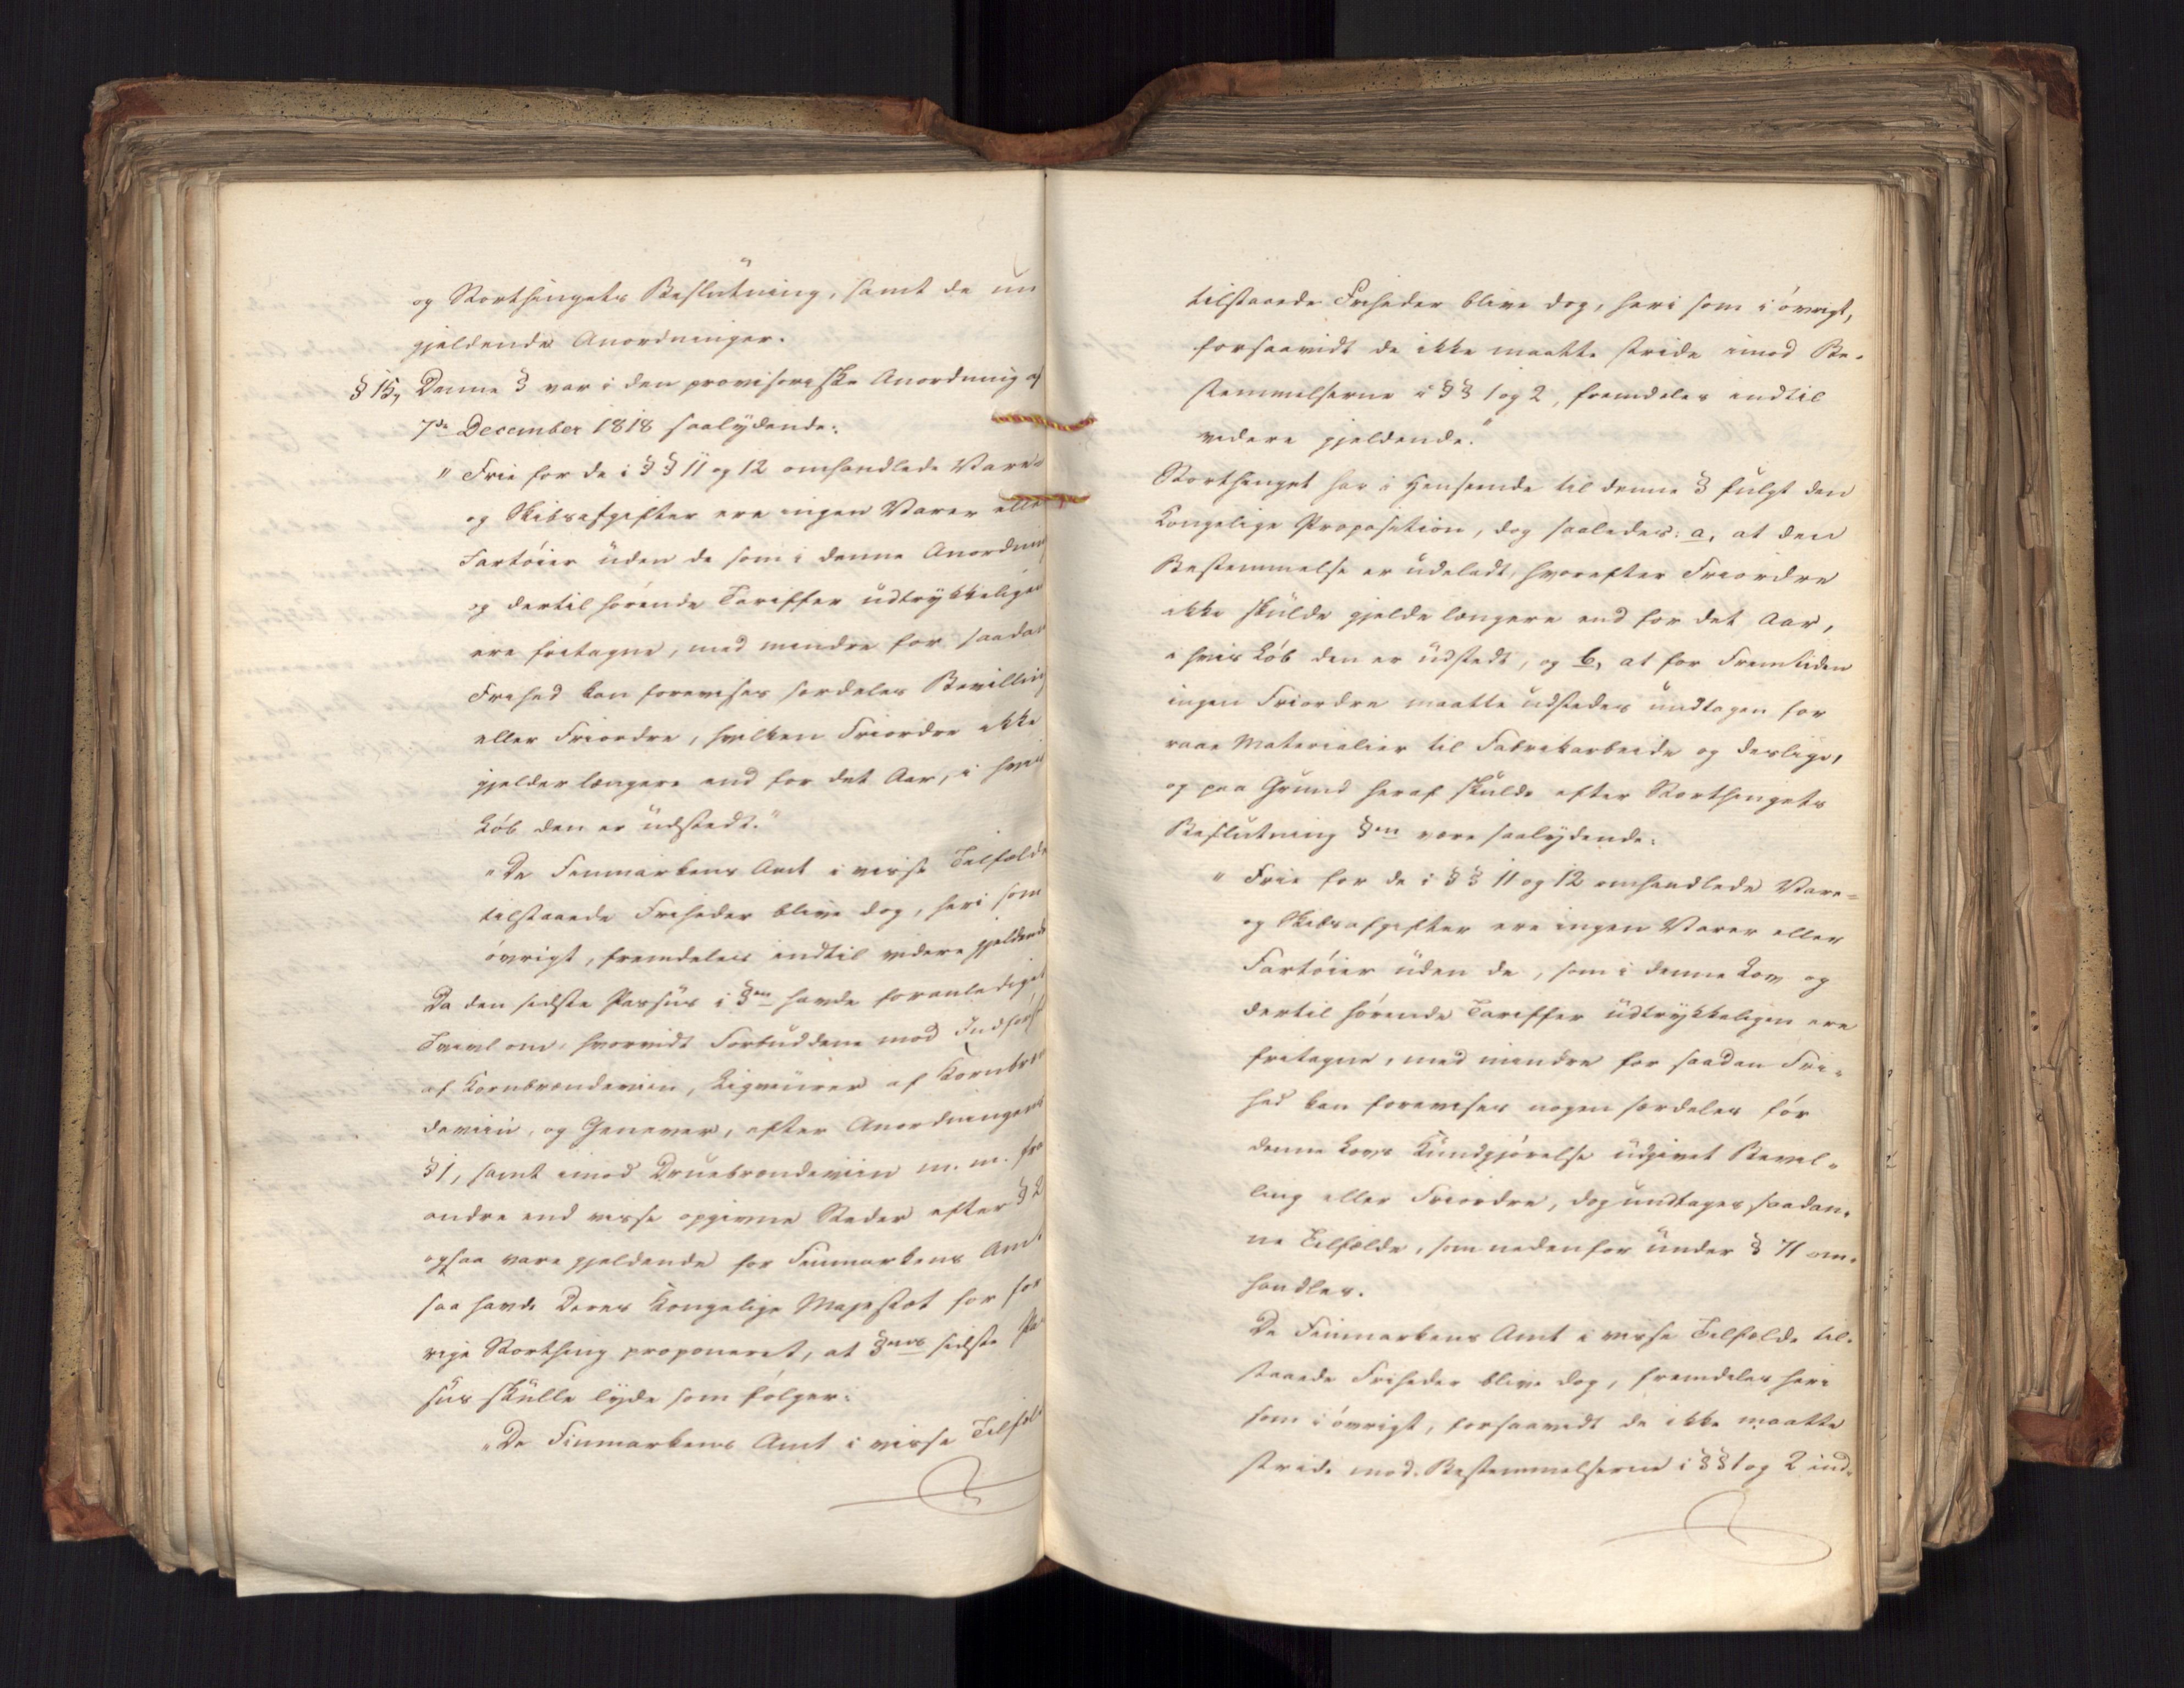 og Storthingets Beslutning, samt de nu
gjeldende Anordninger.
§ 15, Denne § var i den provisoriske Anordning af
7de December 1818 saalydende:
"Frie for de i §§ 11 og 12 omhandlede Vare-
og Skibsafgifter ere ingen Varer eller
Fartöier uden de som i denne Anordning
og dertil hörende Tariffer udtrykkeligen
ere fritagne, med mindre for saadan
Frihed kan forevises særdeles Bevilling
eller Friordre, hvilken Friordre ikke
gjelder længere end for det Aar, i hvis
Löb den er udstedt."
"De Finmarkens Amt i visse Tilfælde
tilstaaede Friheder blive dog, heri som
övrigt, fremdeles indtil videre gjeldende
Da den sidste Passus i §en havde foranlediget
Tvivl om, hvorvidt Forbuddene mod Indförsel
af Kornbrændeviin, Liqueurer af Kornbræn
deviin, og Genever, efter Anordningens
§ 1, samt imod Druebrændeviin m. m. fra
andre end visse opgivne Steder efter § 2
ogsaa vare gjeldende for Finmarkens Amt
saa havde Deres Kongelige Majestæt for for
rige Storthing proponeret, at §ens sidste Pas
sus skulle lyde som fölger:
"De Finmarkens Amt i visse Tilfælde
tilstaaede Friheder blive dog, heri som i övrigt,
forsaavidt de ikke maatte stride imod Be-
stemmelserne i §§ 1 og 2, fremdeles indtil
videre gjeldende."
Storthinget har i Henseende til denne § fulgt den
Kongelige Proposition, dog saaledes: a, at den
Bestemmelse er udeladt, hvorefter Friordre
ikke skulde gjelde længere end for det Aar,
i hvis Löb den er udstedt, og b, at for Fremtiden
ingen Friordre maatte udstedes undtagen for
raae Materialier til Fabrikarbeide og deslige,
og paa Grund heraf skulde efter Storthingets
Beslutning §en være saalydende:
"Frie for de i §§ 11 og 12 omhandlede Vare-
og Skibsafgifter ere ingen Varer eller
Fartöier uden de, som i denne Lov og
dertil hörende Tariffer udtrykkeligen ere
fritagne, med mindre for saadan Fri-
hed kan forevises nogen særdeles för
denne Lovs Kundgjörelse udgivet Bevil-
ling eller Friordre, dog undtages saadan-
ne Tilfælde, som nedenfor under § 71 om-
handles.
De Finmarkens Amt i visse Tilfælde til-
staaede Friheder blive dog, fremdeles heri
som i övrigt, forsaavidt de ikke maatte
stride mod Bestemmelserne i §§ 1 og 2 ind-